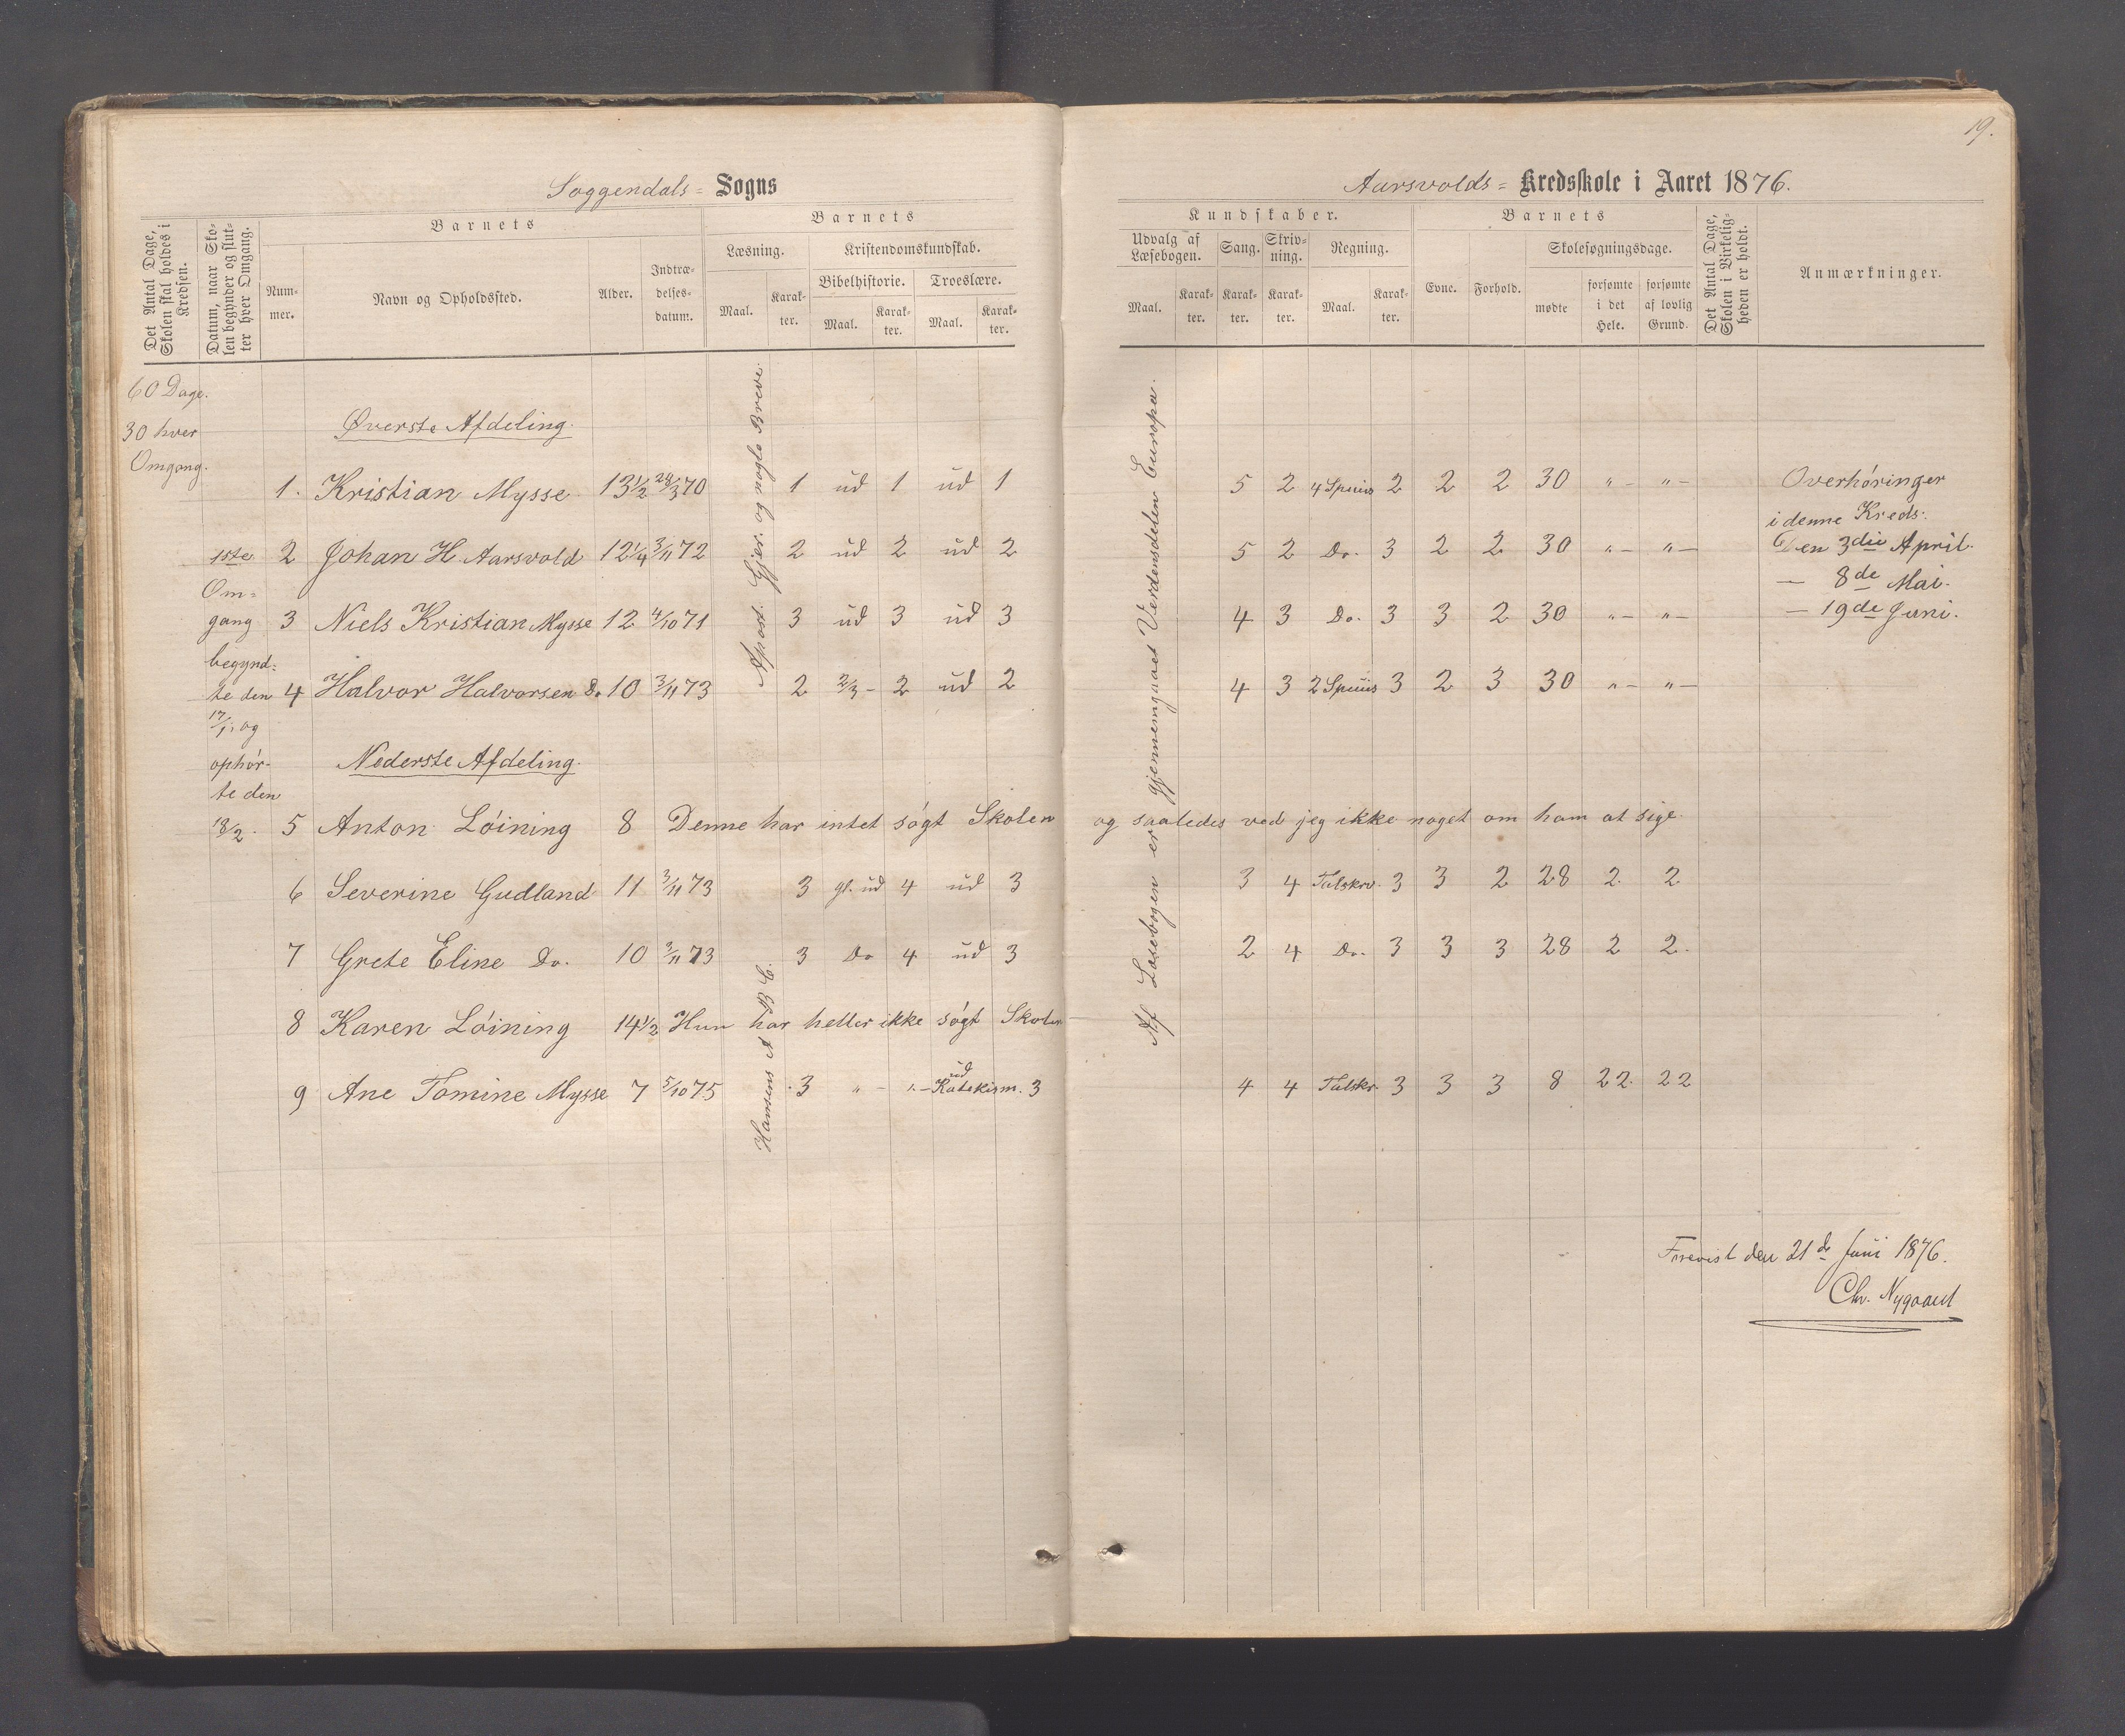 19.
Soggendals= Sogns
Aarsvolds= Kredsskole i Aaret 1876.
Det Antal Dage, Skolen skal holdes i Kredsen.
Datum, naar Skolen begynder og slutter hver Omgang.
Barnets
Nummer.
Navn og Opholdssted.
Alder.
Indtrædelsesdatum.
Barnets
Læsning.
Maal.
Karakter.
Kristendomskundskab.
Bibelhistorie.
Maal.
Karakter.
Troeslære.
Maal.
Karakter.
Kundskaber.
Udvalg af Læsebogen.
Maal.
Karakter.
Sang.
Karakter.
Skrivning.
Karakter.
Regning.
Maal.
Karakter.
Barnets
Evne.
Forhold.
Skolesøgningsdage.
mødte
forsømte i det Hele.
forsømte af lovlig Grund.
Det Antal Dage, Skolen i Virkeligheden er holdt.
Anmærkninger.
60 Dage.
30 hver
Omgang.
1ste
Om=
gang
begynd:
te den
17/1; og
ophør-
te den
18/2.
Apost. Gjer. og nogle Breve.
Hansens A B C.
Af Læsebogen er gjennemgaaet Verdensdelen Europa.
Øverste Afdeling.
1. Kristian Mysse 13 1/2 28/3 70 1 ud 1 ud 1 5 2 4 Spuiis 2 2 2 30 "- "-
2 Johan H. Aarsvold 12 1/4 3/11 72 2 ud 2 ud 2 5 2 Do. 3 2 2 30 "- "-
3 Niels Kristian Mysse 12 4/10 71 3 ud 3 ud 3 4 3 Do. 3 3 2 30 "- "-
4 Halvor Halvorsen Do 10 3/11 73 2 2/3 - 2 ud 2 4 3 2 Spuiis 3 2 3 30 "- "-
Nederste Afdeling.
5 Anton Löining 8 Denne har intet søgt Skolen og saaledes ved jeg ikke noget om ham at sige.
6 Severine Gudland 11 3/11 73 3 gl. ud 4 ud 3 3 4 Talskrv. 3 3 2 28 2. 2
7 Grete Eline Do. 10 3/11 73 3 Do 4 ud 3 2 4 Do. 3 3 3 28 2 2.
8 Karen Löining 14 1/2 Hun har heller ikke søgt Skolen
9 Ane Tomine Mysse 7 5/10 75 3 "- "- ud Katekism. 3 4 4 Talskr. 3 3 3 8 22. 22
Overhøringer
i denne Kreds:
Den 3die April.
— 8de Mai.
— 19de Juni.
Forevist den 21de Juni 1876.
Chr. Nygaard